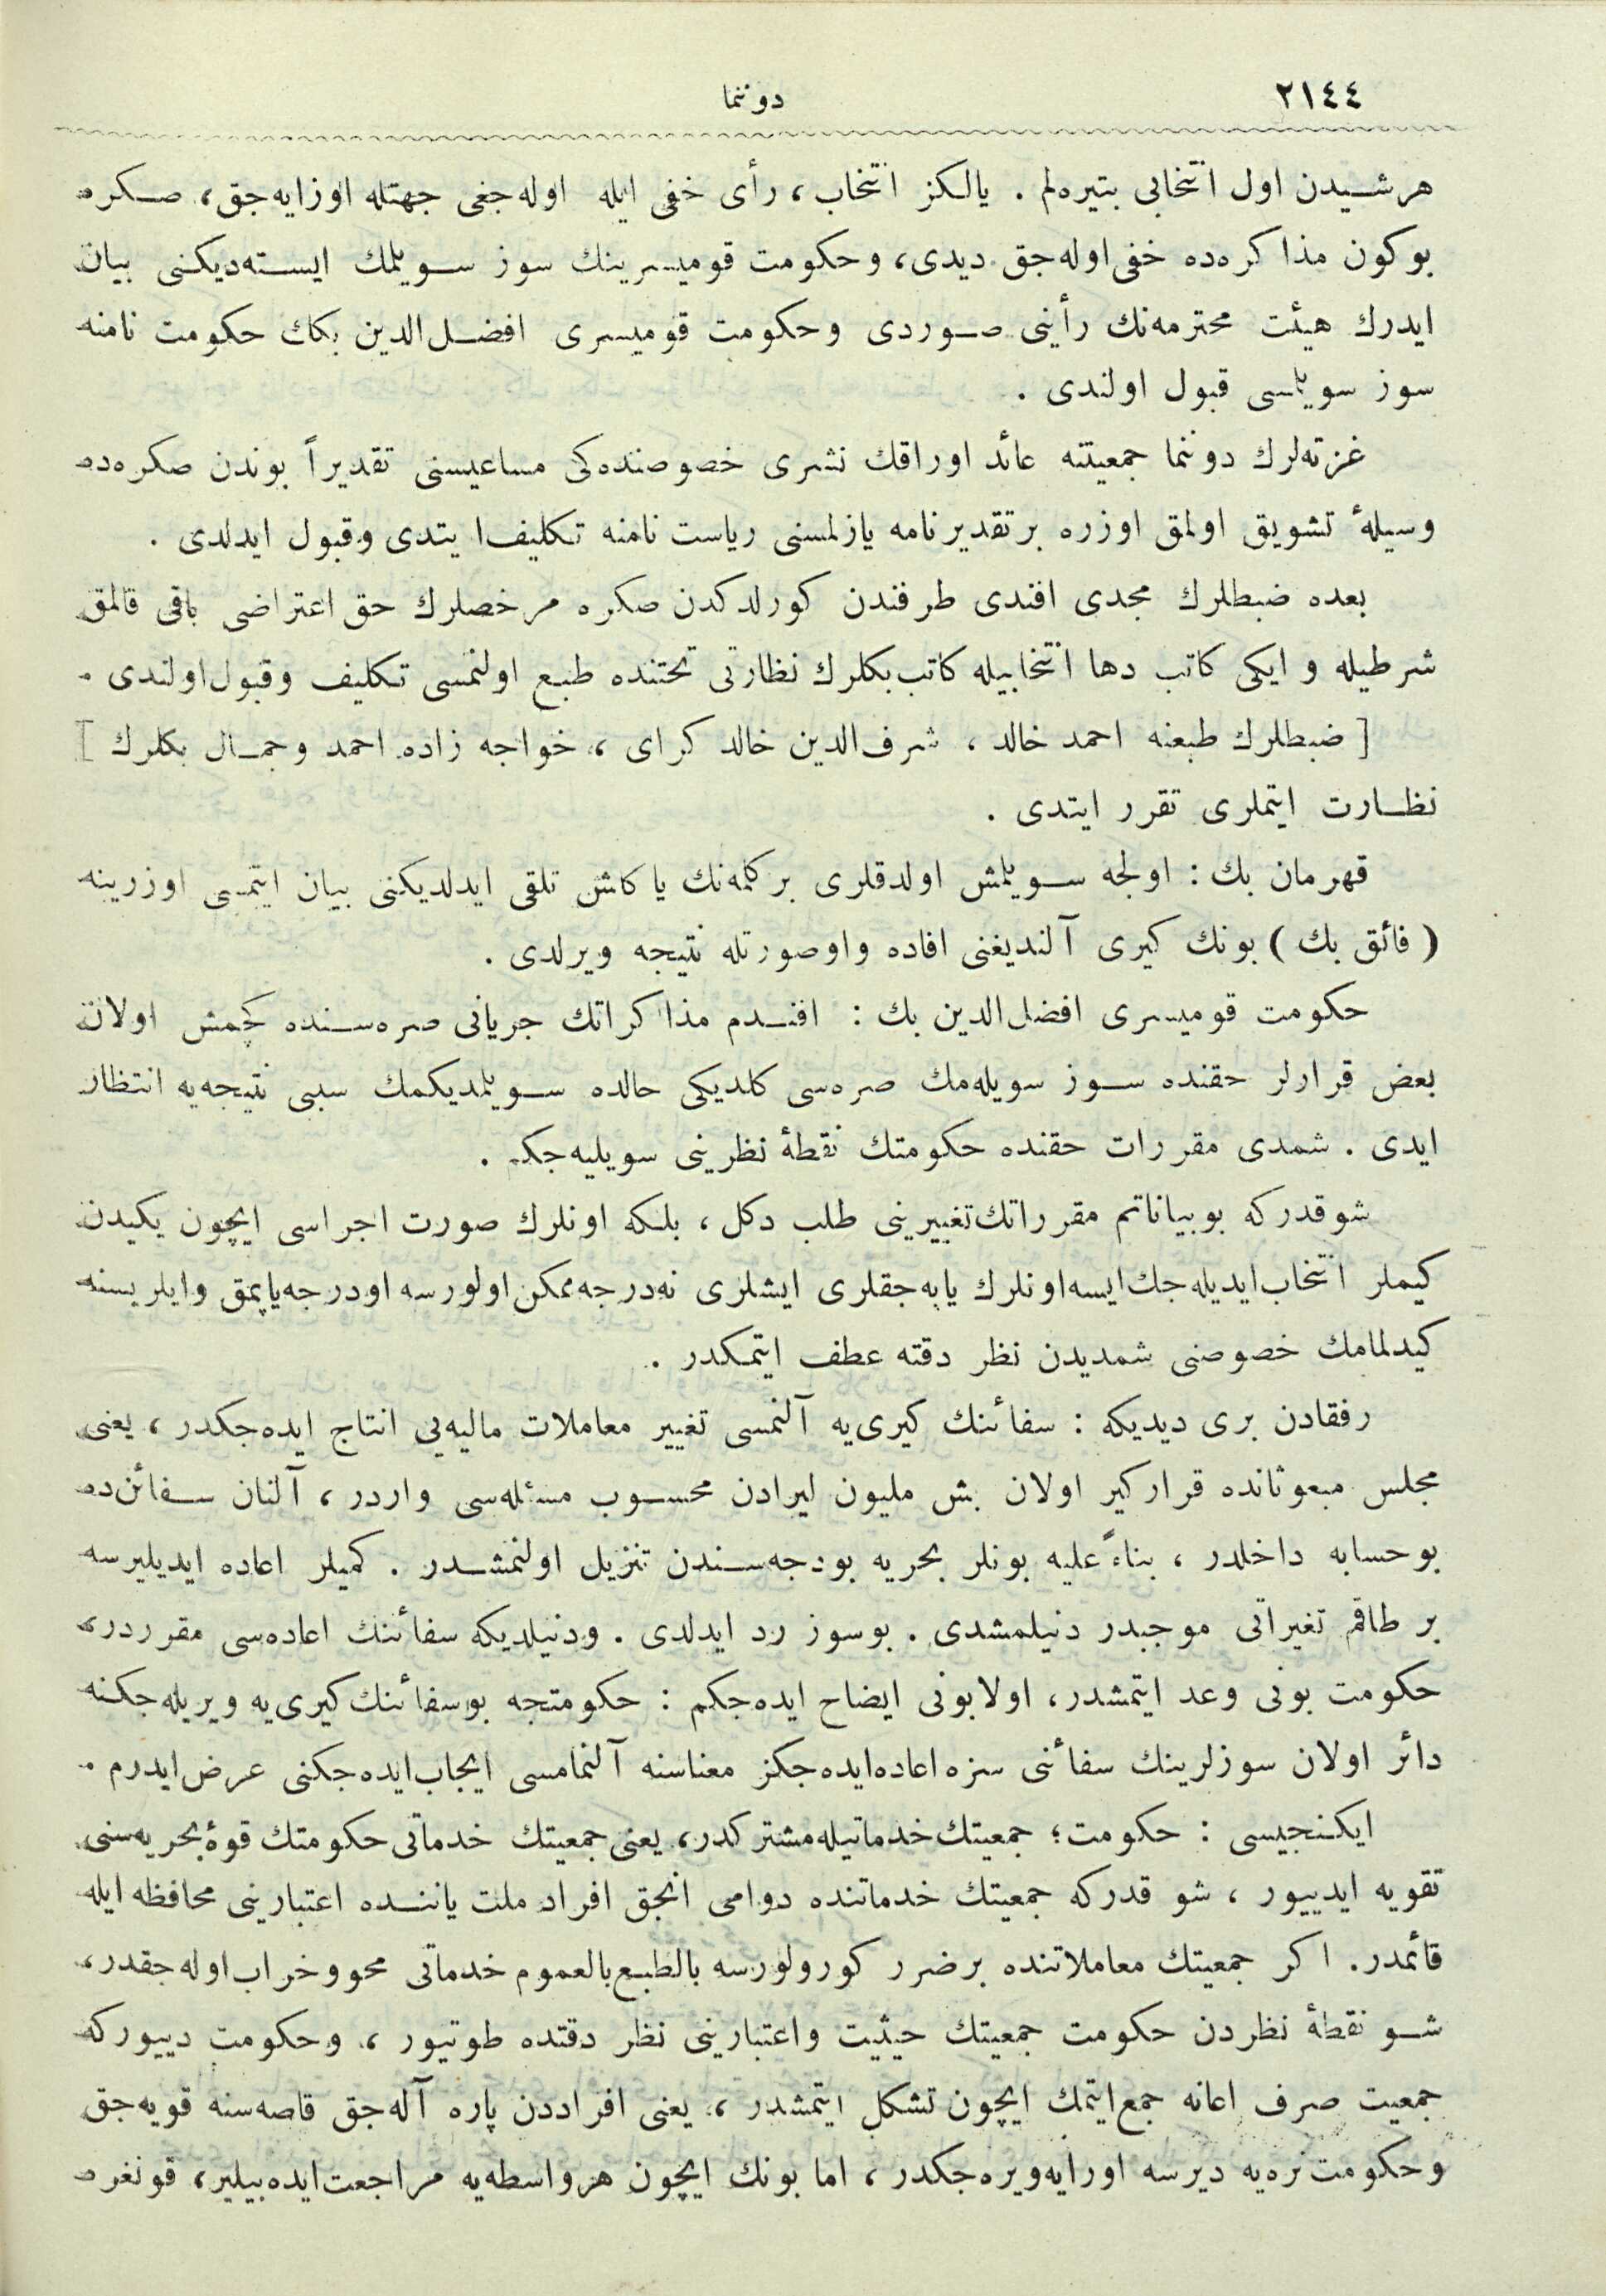 ٢١٤٤
دوننما
هر شیدن اول انتخابی بتیره‌لم . یالكز انتخاب، رأی خفی ایله اوله‌جغی جهتله اوزایه‌جق، صكره
بوكون مذاكره‌ده خفی اوله‌جق دیدی، وحكومت قومیسرینك سوز سویلمك ایسته‌دیكنی بیان
ایدرك هیئت محترمه‌نك رأینی صوردی وحكومت قومیسری افضل‌الدین بكك حكومت نامنه
سوز سویلمسی قبول اولندی .
غزته‌لرك دوننما جمعیتنه عائد اوراقك نشری خصوصنده‌كی مساعیسنی تقدیراً بوندن صكره‌ده
وسیلهٔ تشویق اولمق اوزره برتقدیرنامه یازلمسنی ریاست نامنه تكلیف ایتدی وقبول ایدلدی .
بعده ضبطلرك مجدی افندی طرفندن كورلدكدن صكره مرخصلرك حق اعتراضی باقی قالمق
شرطیله و ایكی كاتب دها انتخابیله كاتب بكلرك نظارتی تحتنده طبع اولنمسی تكلیف وقبول اولندی .
[ ضبطلرك طبعنه احمد خالد ، شرف‌الدین خالد كرای ، خواجه زاده احمد وجمال بكلرك ]
نظارت ایتملری تقرر ایتدی .
قهرمان بك : اولجه سویلمش اولدقلری بر كلمه‌نك یاكلش تلقی ایدلدیكنی بیان ایتمسی اوزرینه
( فائق بك ) بونك كیری آلندیغنی افاده واوصورتله نتیجه ویرلدی .
حكومت قومیسری افضل‌الدین بك : افندم مذاكراتك جریانی صره‌سنده كچمش اولان
بعض قرارلر حقنده سوز سویله‌مك صره‌سی كلدیكی حالده سویلمدیكمك سببی نتیجه‌یه انتظار
ایدی . شمدی مقررات حقنده حكومتك نقطهٔ نظرینی سویلیه‌جكم .
شوقدركه بوبیاناتم مقرراتك تغییرینی طلب دكل ، بلكه اونلرك صورت اجراسی ایچون یكیدن
كیملر انتخاب ایدیله‌جك ایسه اونلرك یاپه‌جقلری ایشلری نه‌درجه ممكن اولورسه اودرجه یاپمق وایلریسنه
كیدلمامك خصوصنی شمدیدن نظر دقته عطف ایتمكدر .
رفقادن بری دیدیكه : سفائنك كیری‌یه آلنمسی تغییر معاملات مالیه‌یی انتاج ایده‌جكدر ، یعنی
مجلس مبعوثانده قراركیر اولان بش ملیون لیرادن محسوب مسئله‌سی واردر ، آلنان سفائن‌ده
بوحسابه داخلدر ، بناءً علیه بونلر بحریه بودجه‌سندن تنزیل اولنمشدر . كمیلر اعاده ایدیلیرسه
بر طاقم تغیراتی موجبدر دنیلمشدی . بوسوز رد ایدلدی . ودنیلدیكه سفائنك اعاده‌سی مقرردر،
حكومت بونی وعد ایتمشدر، اولا بونی ایضاح ایده‌جكم : حكومتجه بوسفائنك كیری‌یه ویریله‌جكنه
دائر اولان سوزلرینك سفائنی سزه اعاده ایده‌جكز معناسنه آلنمامسی ایجاب ایده‌جكنی عرض ایدرم .
ایكنجیسی : حكومت؛ جمعیتك خدماتیله مشتركدر، یعنی جمعیتك خدماتی حكومتك قوهٔ بحریه‌سنی
تقویه ایدییور ، شو قدركه جمعیتك خدماتنده دوامی انجق افراد ملت یاننده اعتبارینی محافظه ایله
قائمدر. اكر جمعیتك معاملاتنده برضرر كورولورسه بالطبع بالعموم خدماتی محو وخراب اوله‌جقدر،
شو نقطهٔ نظردن حكومت جمعیتك حیثیت واعتبارینی نظر دقتده طوتیور ، وحكومت دییوركه
جمعیت صرف اعانه جمع ایتمك ایچون تشكل ایتمشدر ، یعنی افراددن پاره آله‌جق قاصه‌سنه قویه‌جق
وحكومت نره‌یه دیرسه اورایه ویره‌جكدر ، اما بونك ایچون هر واسطه‌یه مراجعت ایده‌بیلیر، قونغره